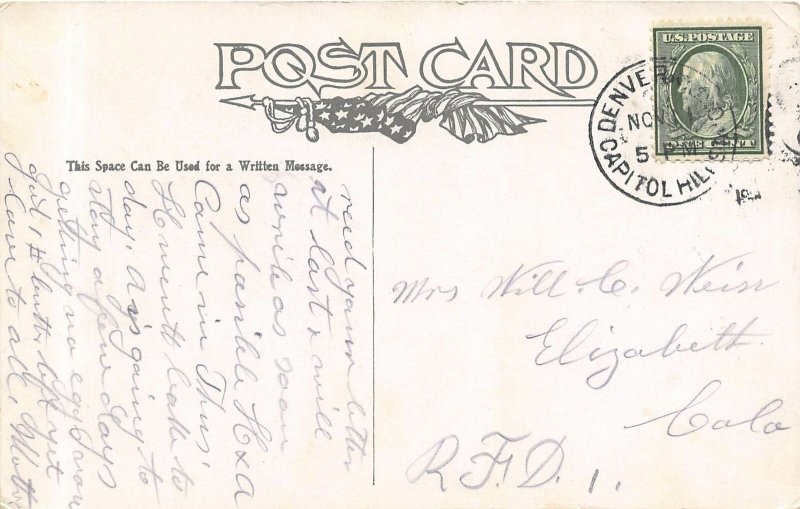 POST CARD
U.S. POSTAGE
DENVER
NOV
5 PM
CAPITOL HILL
This Space Can Be Used for a Written Message.
recd your letter
at last & will
write as soon
as possible H & A
Came in Thus.
H went back to
day. A is going to
stay a few days
getting no eggs now
got 1 # butter left yet
love to all, Mother
Mrs Will. C. Weiss
Elizabeth
Colo
R.F.D. 1.